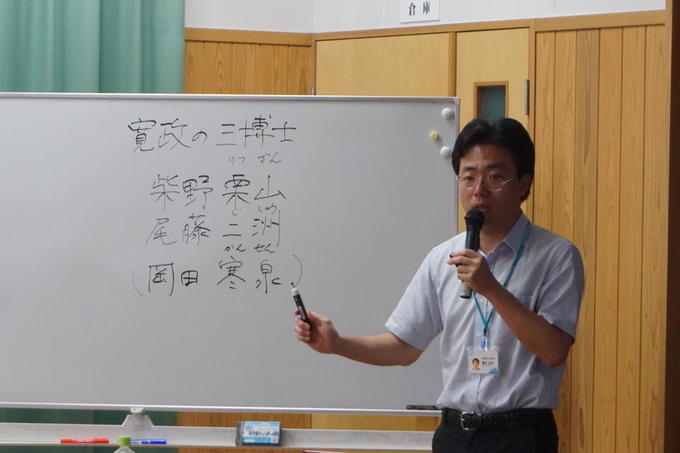 倉庫
寛政の三博士
りつ ざん
柴野栗山
じ しゅう
尾藤二洲
かん せん
(岡田寒泉)